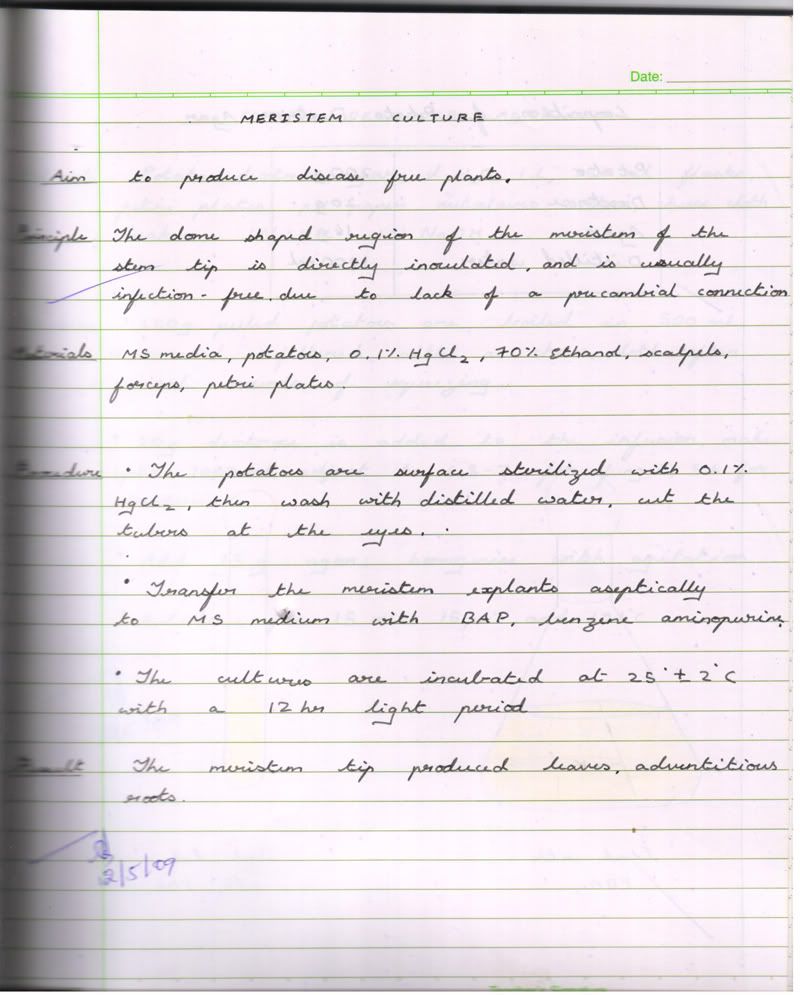 Date:
MERISTEM CULTURE
Aim to produce disease free plants.
Principle The dome shaped region of the meristem of the
stem tip is directly inoculated, and is usually
infection - free. due to lack of a precambial connection
Materials MS media, potatoes, 0.1% HgCl2, 70% Ethanol, scalpels,
forceps, petri plates.
Procedure • The potatoes are surface sterilized with 0.1%
HgCl2, then wash with distilled water, cut the
tubers at the eyes.
• Transfer the meristem explants aseptically
to MS medium with BAP, benzene aminopurine.
• The cultures are incubated at 25° ± 2°C
with a 12 hrs light period
Result The meristem tip produced leaves, adventitious
roots.
2/5/09